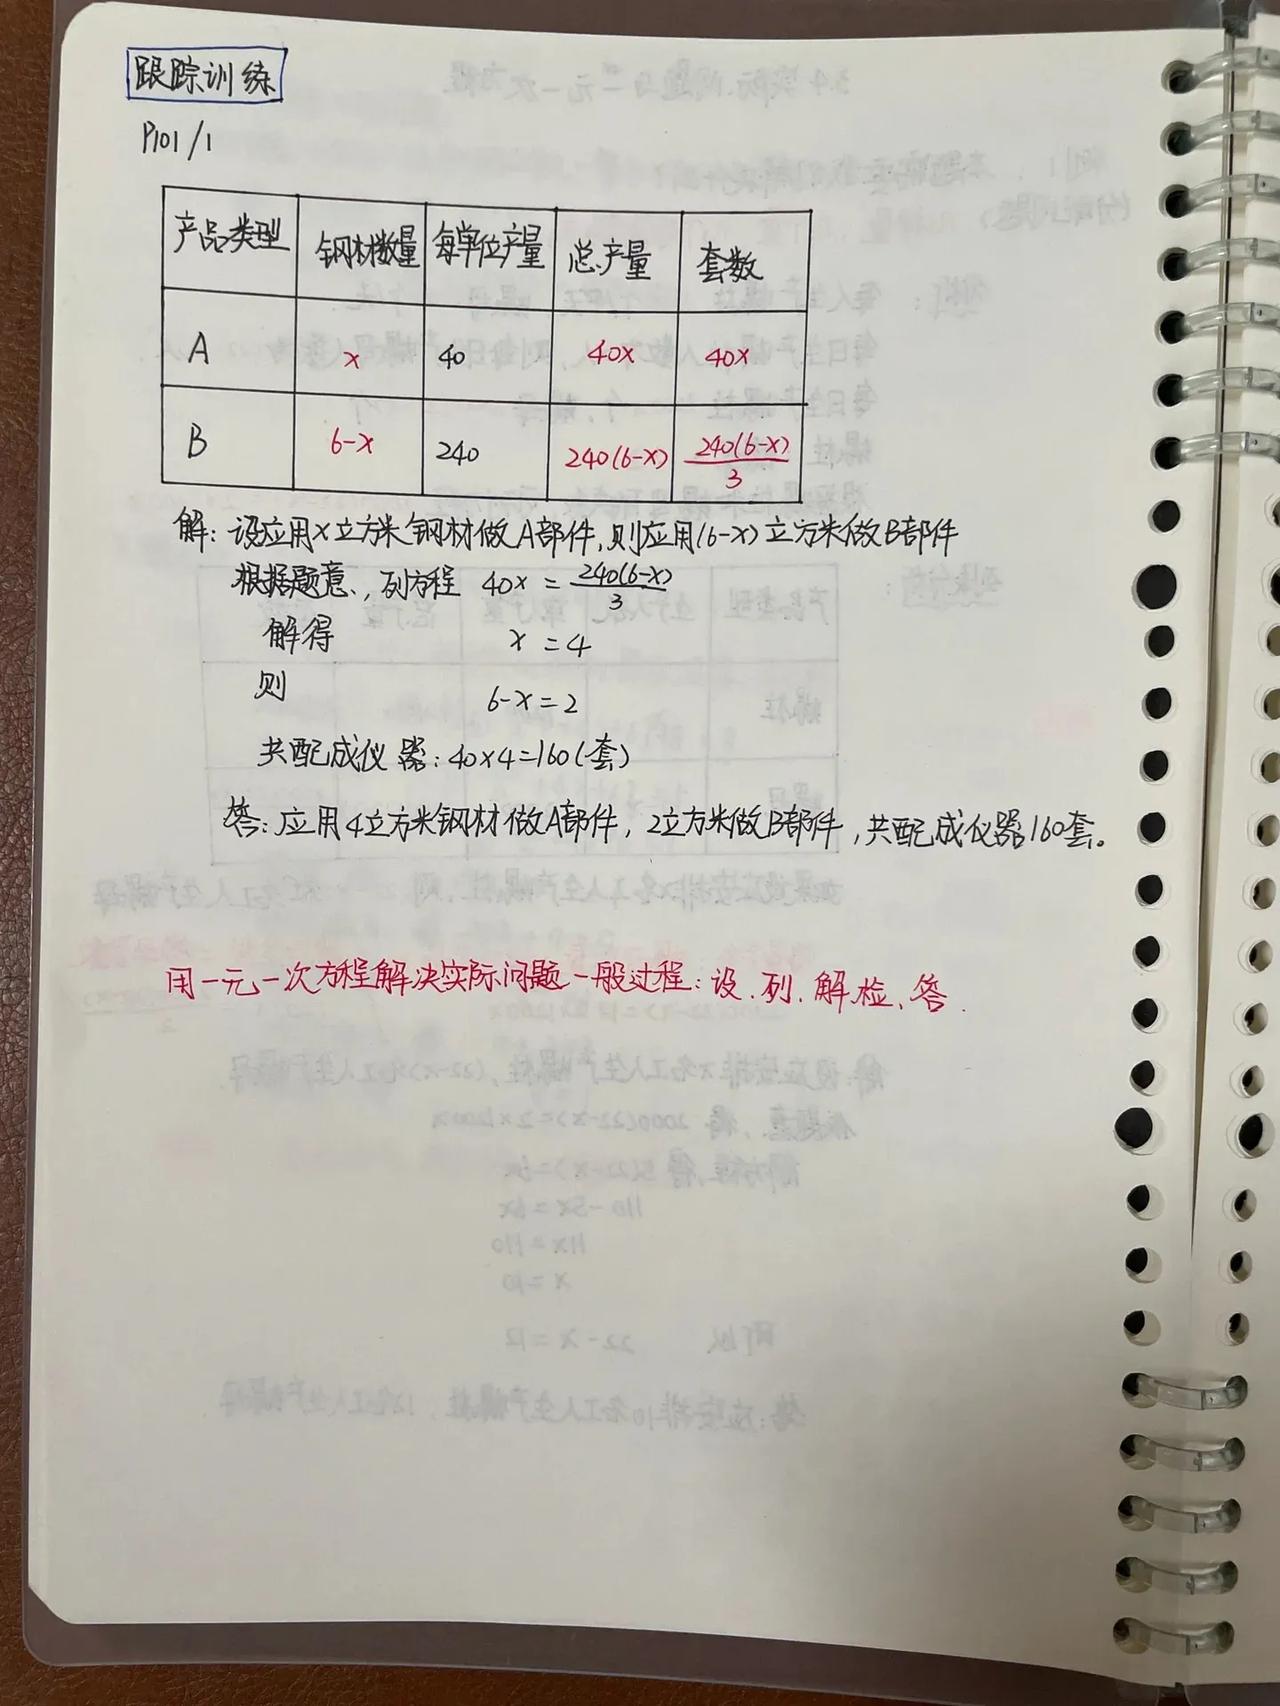 跟踪训练
P101/1
产品类型 钢材数量 每单位产量 总产量 套数
A x 40 40x 40x
B 6-x 240 240(6-x) 240(6-x)/3
解:设应用x立方米钢材做A部件,则应用(6-x)立方米做B部件
根据题意,列方程 40x = 240(6-x)/3
解得 x = 4
则 6-x=2
共配成仪器:40×4=160(套)
答:应用4立方米钢材做A部件,2立方米做B部件,共配成仪器160套。
用一元一次方程解决实际问题一般过程:设、列、解、检、答.